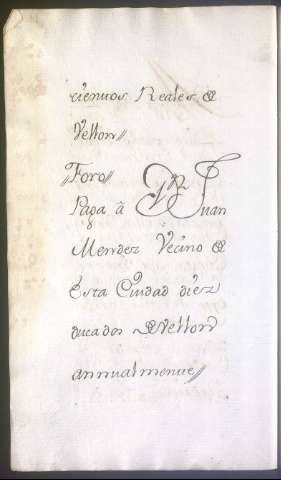 cientos Reales de
Vellon//
//Foro//
Paga â Dn Juan
Mendez Vecino de
ésta Ciudad diez
ducados de Vellon
annualmente//